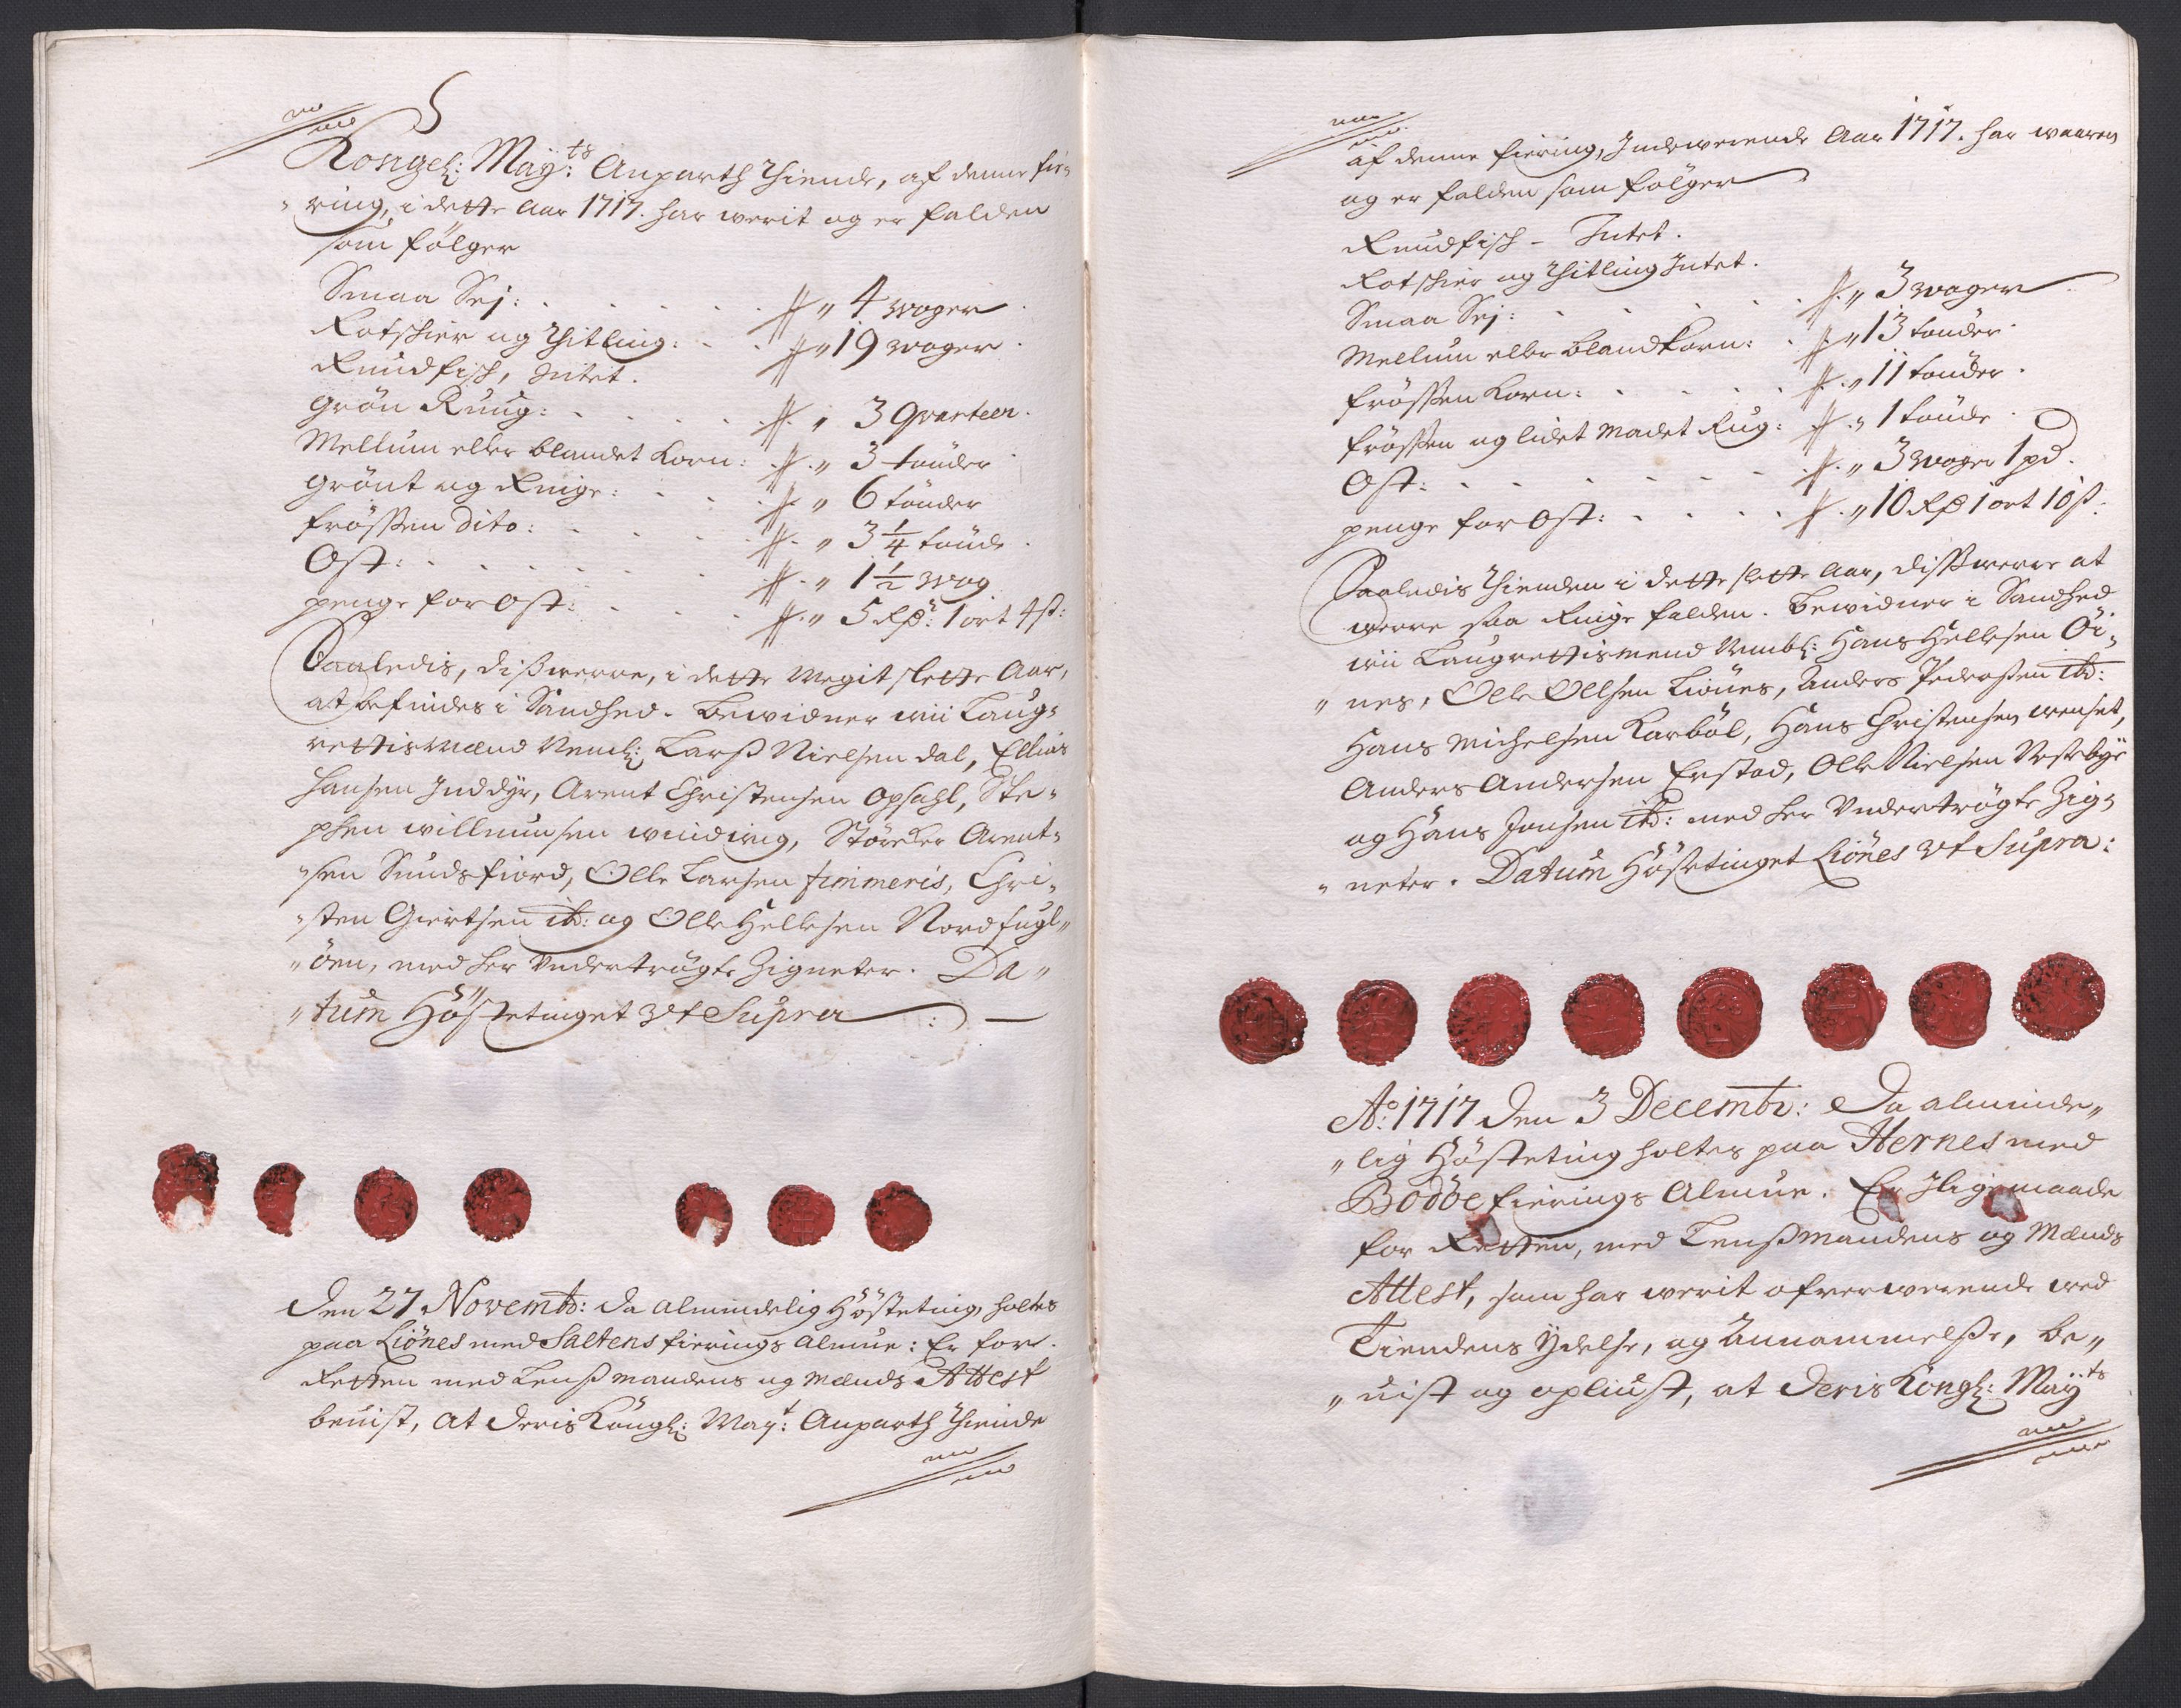 Kongel: May:ts Anparth Thiende, af denne fie-
ring, i dette Aar 1717. har werit og er falden
som følger
Smaa Sej: ∦ " 4 woger
Rotskier og Thitling: ∦ " 19 woger
Rundfisch, Intet.
Grøn Ruug: ∦ " 3 Qvarteer.
Mellum eller blandet Korn: ∦ " 3 tønder
Grønt og Ringe: ∦ " 6 tønder
frøssen dito: ∦ " 3 1/4 tønde
Ost: ∦ " 1 1/2 wog
penge for Ost: ∦ " 5 Rd: 1 ort 4 s:
Saaledis, dissverre, i dette Megit slette Aar,
at befindes i Sandhed. Bewidner wii Laug-
rettismænd Nemb: Larss Nielsen dal, Ellias
Hansen Inddÿr, Arent Christensen Opsahl, Ste-
phen willumsen windwig, Størcker Arent-
"sen Sundsfiord, Olle Larsen fimmeris, Chri-
"sten Giertsen ibd: og Olle Hellesen Nordfugl"
"øen, med her Undertrøgte Zigneter. Da"
"tum Høstetinget Vt Supra
Den 27 Novemb: da Almindelig Høsteting holtes
paa Liønes med Saltens fierings Almue: Er for
Retten med Lenssmandens og Mænds Attest
beuist, at Deris Kongl: May:t Anparth Thiende
af denne fiering, Inderverende Aar 1717. har waaren
og er falden som følger
Rundfisch - Intet.
Rotskier og Thitling Intet.
Smaa Sej: ∦ " 3 woger
Mellum eller blandkorn: ∦ " 13 tønder
frøssen Korn: ∦ " 11 tønder
frøssen og lidet Madet Rug: ∦ " 1 tønde
Ost: ∦ " 3 woger 1 pd.
penge for Ost: ∦ " 10 Rd 1 ort 10 s:
Saaledis Thienden i dette slette Aar, dissverre at
werre saa Ringe falden. Bewidner i Sandhed
wii Laugrettismend Nembl: Hans Hellesen Øi-
" nes, Olle Ollsen Liønes, Anders Pedersen ibd:
Hans Michelsen Karbøl, Hans Christensen wenset,
Anders Andersen Erstad, Olle Nielsen Westbye
og Hans Jonsen ibd: med her Undertrøgte Zig-
" neter. Datum Høstetinget Liønes Vt Supra:
Ao: 1717 Den 3 Decembr: Da alminde"
"lig Høsteting holtes paa Hernes med
Bodøe fierings Almue. Er Iligemaade
for Retten, med Lenssmandens og Mænds
Attest, som har werit ofververende wed
Tiendens Ydelse, og Annammelsse, be"
"uist og opliust, at Deris Kongl: Maÿts